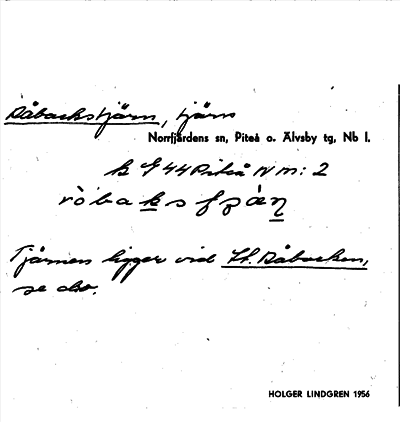 Råbackstjärn, tjärn
Norrfjärdens sn, Piteå o. Älvsby tg, Nb l.
k 44 Piteå N m: 2
Tjärnen ligger vid St. Råbacken,
se do.
HOLGER LINDGREN 1956